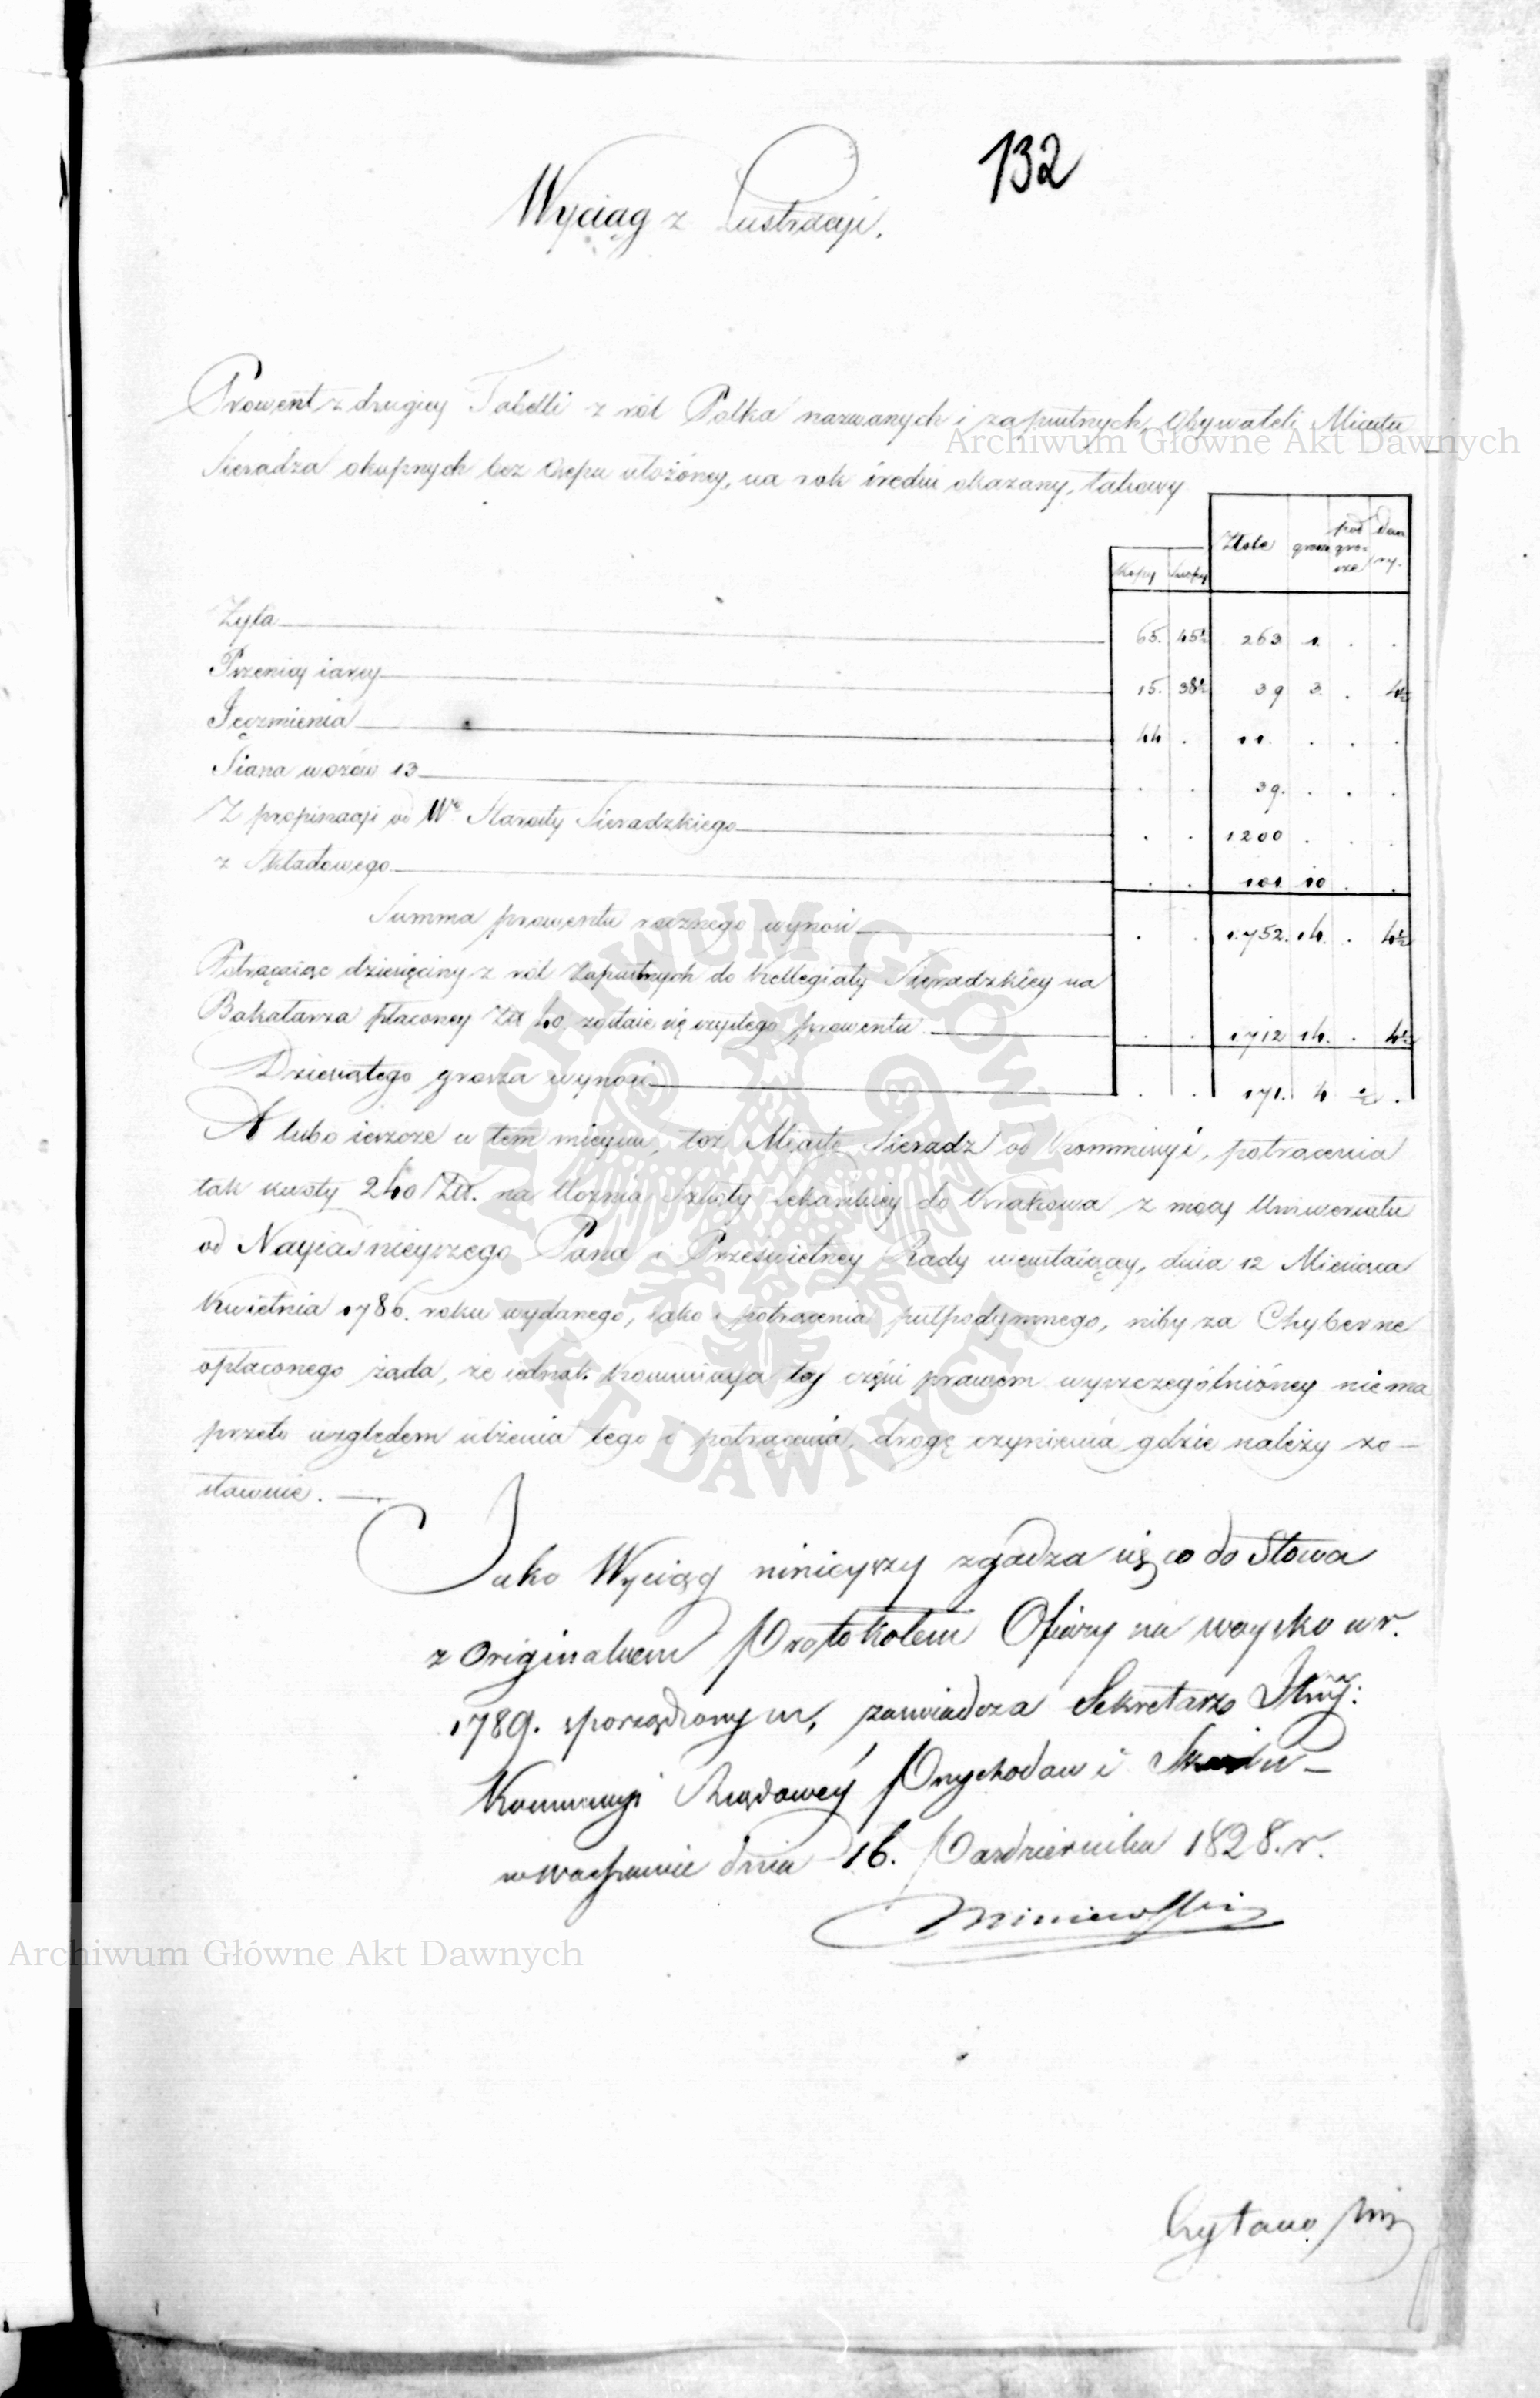 132
Wyciąg z Lustracji.
Prowent z drugiey Tabelli z ról Polka nazwanych i zapustnych, Obywateli Miasta
Archiwum Główne Akt Dawnych
Sieradza okupnych bez ułożóney, na rok średni okazany, takowy
Złote grosze pół grosze dena ry.
Kopy Snopy
Żyta 65. 45½ 263 1. . .
Pszenicy iarey 15. 38½ 39 3. . 4½
Jęczmienia 44 . 11. . . .
Siana wozów 13 . . 39. . . .
Z propinacji od Wo Starosty Sieradzkiego . . 1200 . . .
z Składowego . . 101 10 . .
Summa prowentu rocznego wynosi . . 1.752. 14. . 4½
Potrąciwszy dziesięciny z ról Zapustnych do Kollegiaty Sieradzkiey na
Bakałarza płaconey Zł 40, zostaie się czystego prowentu . . 1712 14. . 4½
Dziesiątego grosza wynosi . . 171. 4 ½ .
A lubo ieszcze w tem mieyscu, toż Miasto Sieradz od Kommissyi, potrącenia
tak kwoty 240 Zł. na Ucznia Szkoły Lekarskiey do Krakowa z mocy Uniwersału
od Nayiaśnieyszego Pana i Prześwietney Rady nieustaiącey, dnia 12 Miesiąca
Kwietnia 1786. roku wydanego, iako i potrącenia pułpodymnego, niby za Chyberne
opłaconego żąda, że iednak Kommissya tey części prawem wyszczególnióney niema
przeto względem ulżenia tego i potrącenia, drogę czynienia gdzie należy zo-
stawuie.
Jako Wyciąg ninieyszy zgadza się co do Słowa
z Originalnem Protokołem Ofiary na woysko w r.
1789. sporządzonym, zaświadcza Sekretarz Jlny:
Kommissyi Rządowey Przychodów i Skarbu
w Warszawie dnia 16. Października 1828. r.
Czytano
Archiwum Główne Akt Dawnych
ARCHIWUM GŁÓWNE AKT DAWNYCH